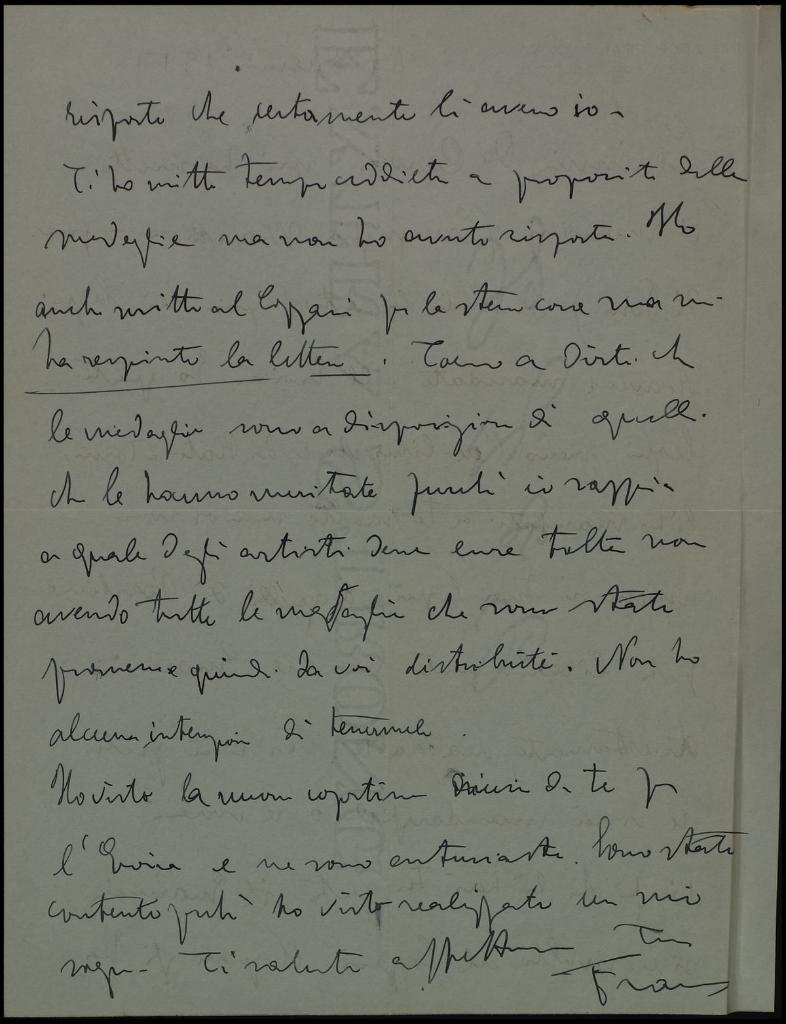 risposto che certamente li avevo io -
Ti ho scritto tempo addietro a proposito delle
medaglie ma non ho avuto risposta. Ho
anche scritto al Cozzani per la stessa cosa ma mi
ha respinto la lettera. Torno a dirti che
le medaglie sono a disposizione di quelli
che le hanno meritate purché io sappia
a quale degli artisti deve essere tolta non
avendo tutte le medaglie che sono state
promesse e quindi da voi distribuite. Non ho
alcuna intenzione di tenermele.
Ho visto la nuova copertina di te per
l'Eroica e ne sono entusiasta. Sono stato
contento perché ho visto realizzato un mio
sogno - Ti saluto affettuosamente Tuo